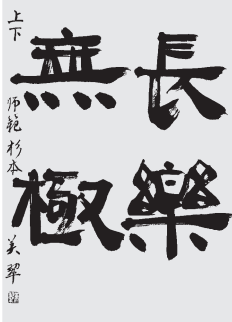 長樂
無極
上下 師範 杉本 美翠